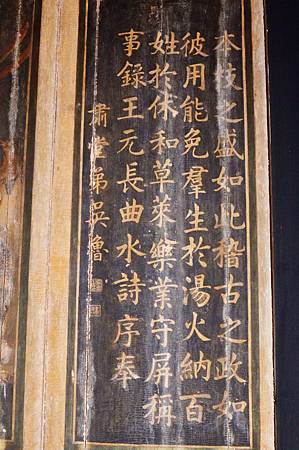 本枝之盛如此稽古之政如
彼用能免羣生於湯火納百
姓於休和草萊樂業守屏稱
事錄王元長曲水詩序奉
肅堂弟吳魯